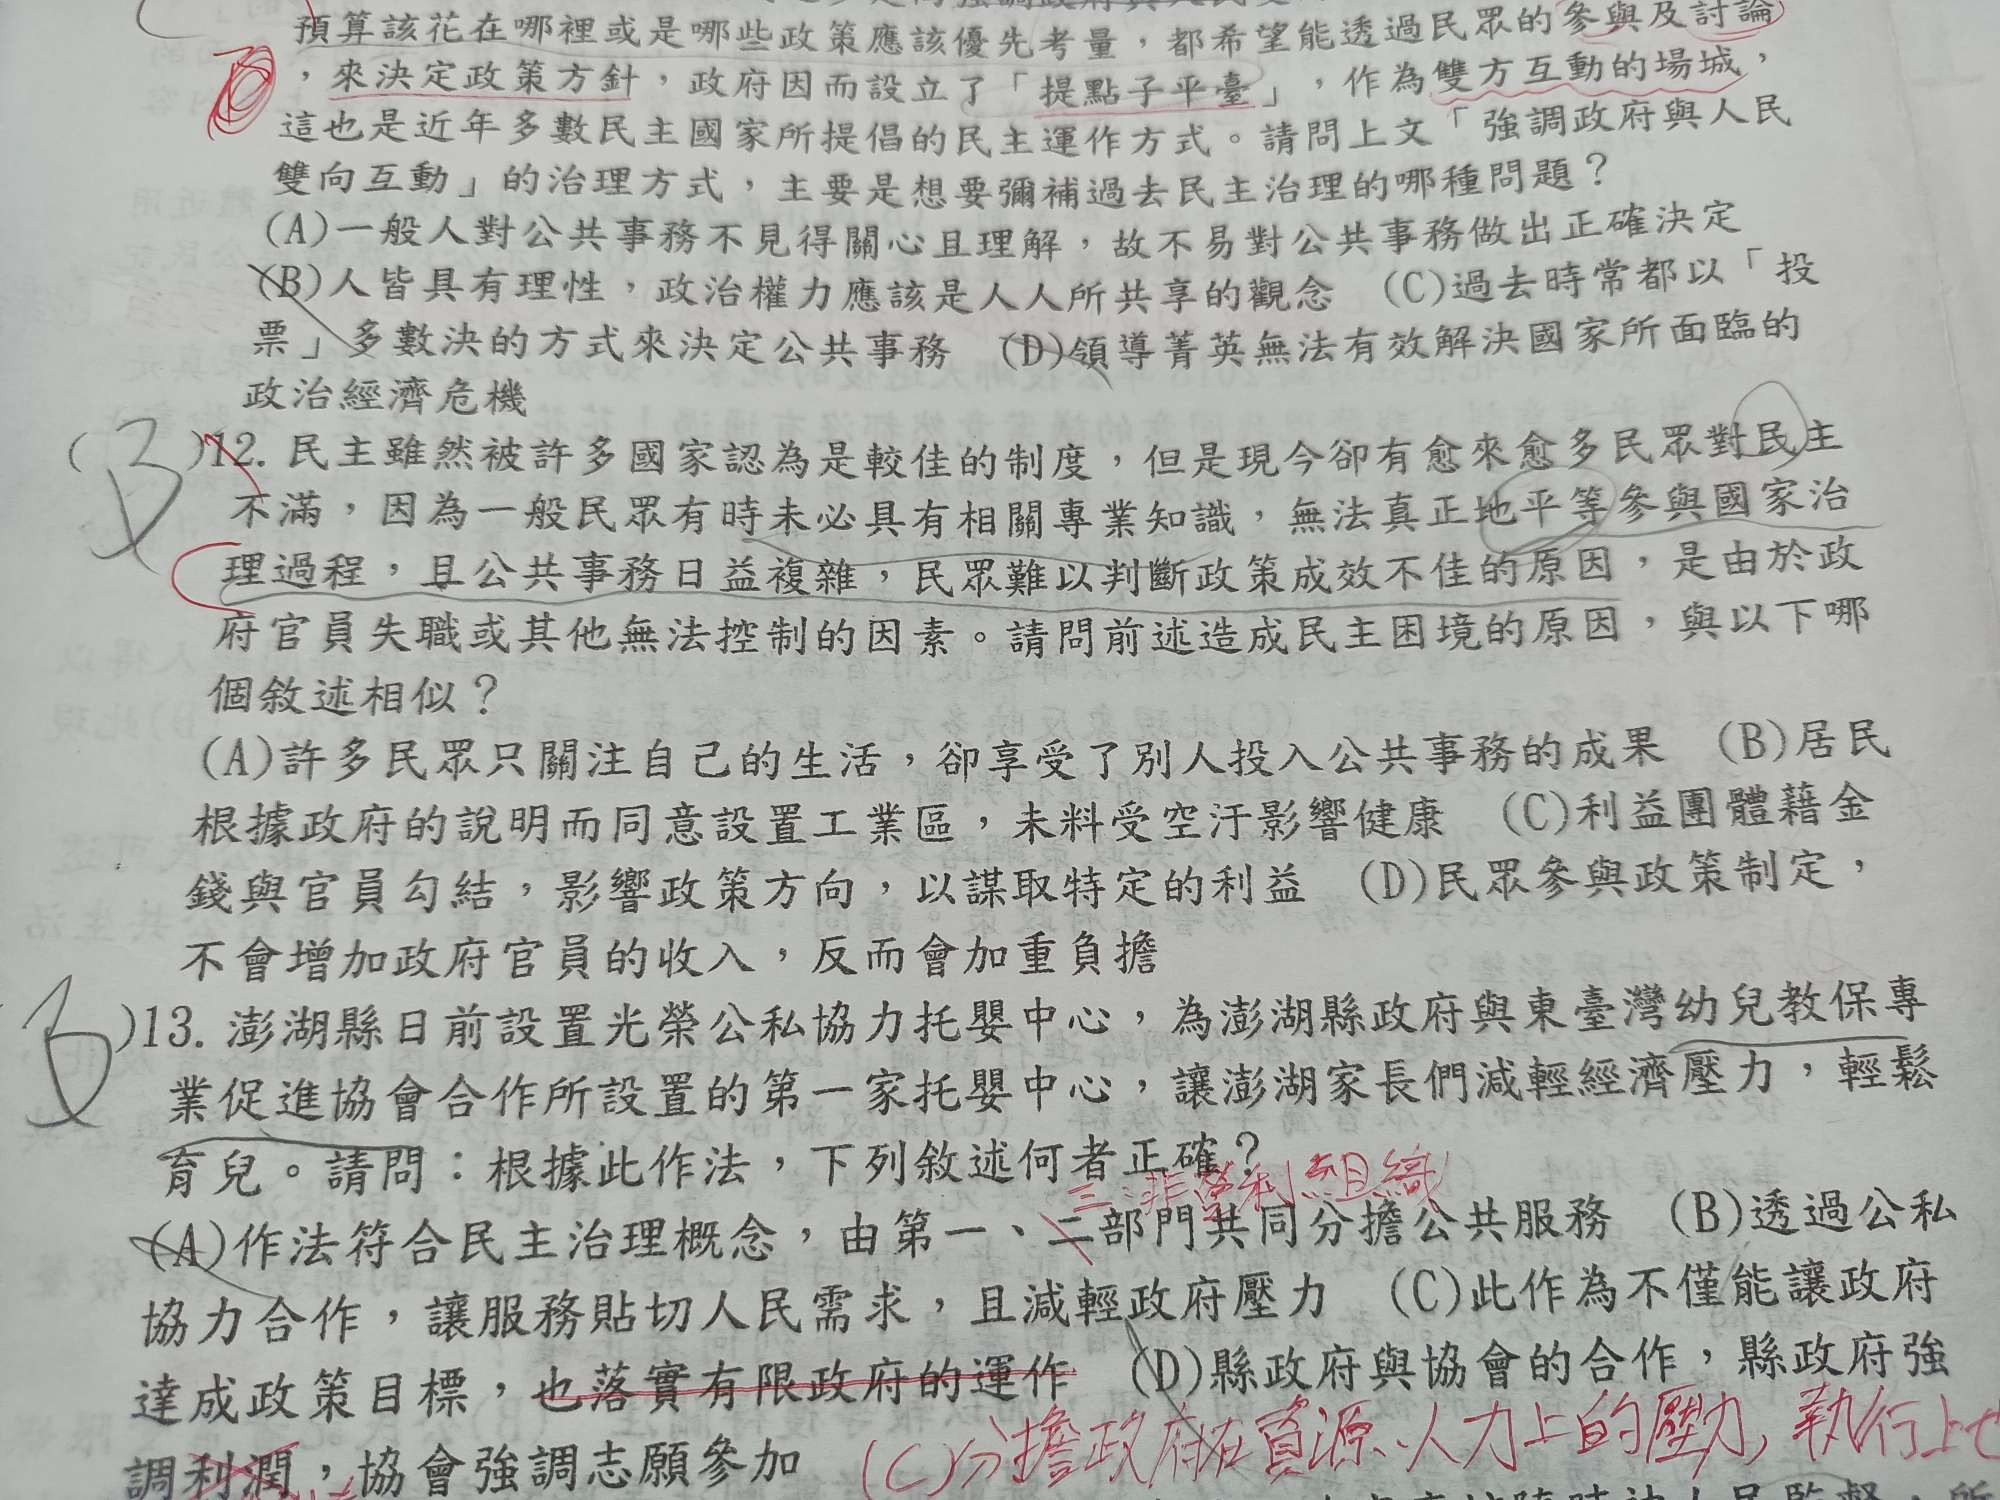 預算該花在哪裡或是哪些政策應該優先考量，都希望能透過民眾的參與及討論
，來決定政策方針，政府因而設立了「提點子平臺」，作為雙方互動的場域，
這也是近年多數民主國家所提倡的民主運作方式。請問上文「強調政府與人民
雙向互動」的治理方式，主要是想要彌補過去民主治理的哪種問題？
(A)一般人對公共事務不見得關心且理解，故不易對公共事務做出正確決定
(B)人皆具有理性，政治權力應該是人人所共享的觀念 (C)過去時常都以「投
票」多數決的方式來決定公共事務 (D)領導菁英無法有效解決國家所面臨的
政治經濟危機
(B)12. 民主雖然被許多國家認為是較佳的制度，但是現今卻有愈來愈多民眾對民主
不滿，因為一般民眾有時未必具有相關專業知識，無法真正地平等參與國家治
理過程，且公共事務日益複雜，民眾難以判斷政策成效不佳的原因，是由於政
府官員失職或其他無法控制的因素。請問前述造成民主困境的原因，與以下哪
個敘述相似？
(A)許多民眾只關注自己的生活，卻享受了別人投入公共事務的成果 (B)居民
根據政府的說明而同意設置工業區，未料受空汙影響健康 (C)利益團體藉金
錢與官員勾結，影響政策方向，以謀取特定的利益 (D)民眾參與政策制定，
不會增加政府官員的收入，反而會加重負擔
(B)13. 澎湖縣日前設置光榮公私協力托嬰中心，為澎湖縣政府與東臺灣幼兒教保專
業促進協會合作所設置的第一家托嬰中心，讓澎湖家長們減輕經濟壓力，輕鬆
育兒。請問：根據此作法，下列敘述何者正確？
三:非營利組織
(A)作法符合民主治理概念，由第一、二部門共同分擔公共服務 (B)透過公私
協力合作，讓服務貼切人民需求，且減輕政府壓力 (C)此作為不僅能讓政府
達成政策目標，也落實有限政府的運作 (D)縣政府與協會的合作，縣政府強
調利潤，協會強調志願參加
(C)分擔政府在資源、人力上的壓力，執行上